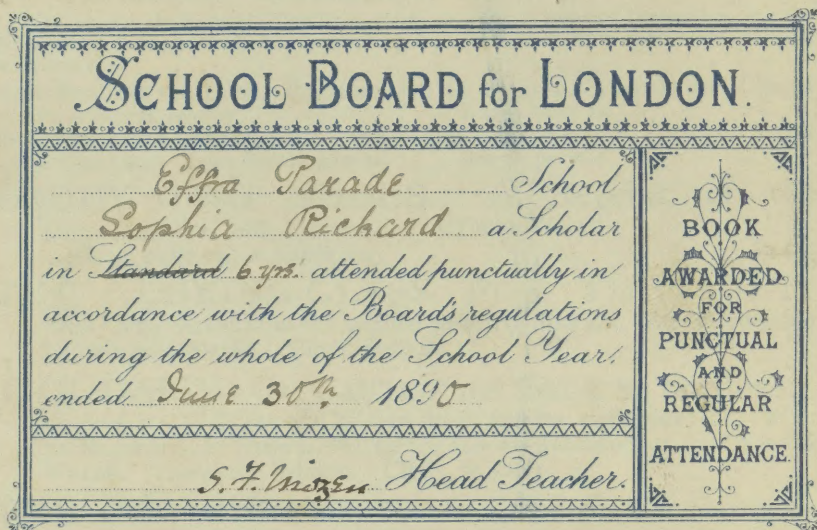 SCHOOL BOARD for LONDON.
Effra Parade School
Sophia Richard a Scholar
in Standard 6 yrs. attended punctually in
accordance with the Board's regulations
during the whole of the School Year.
ended June 30th 1890
S. F. Head Teacher.
BOOK
AWARDED
FOR
PUNCTUAL
AND
REGULAR
ATTENDANCE.